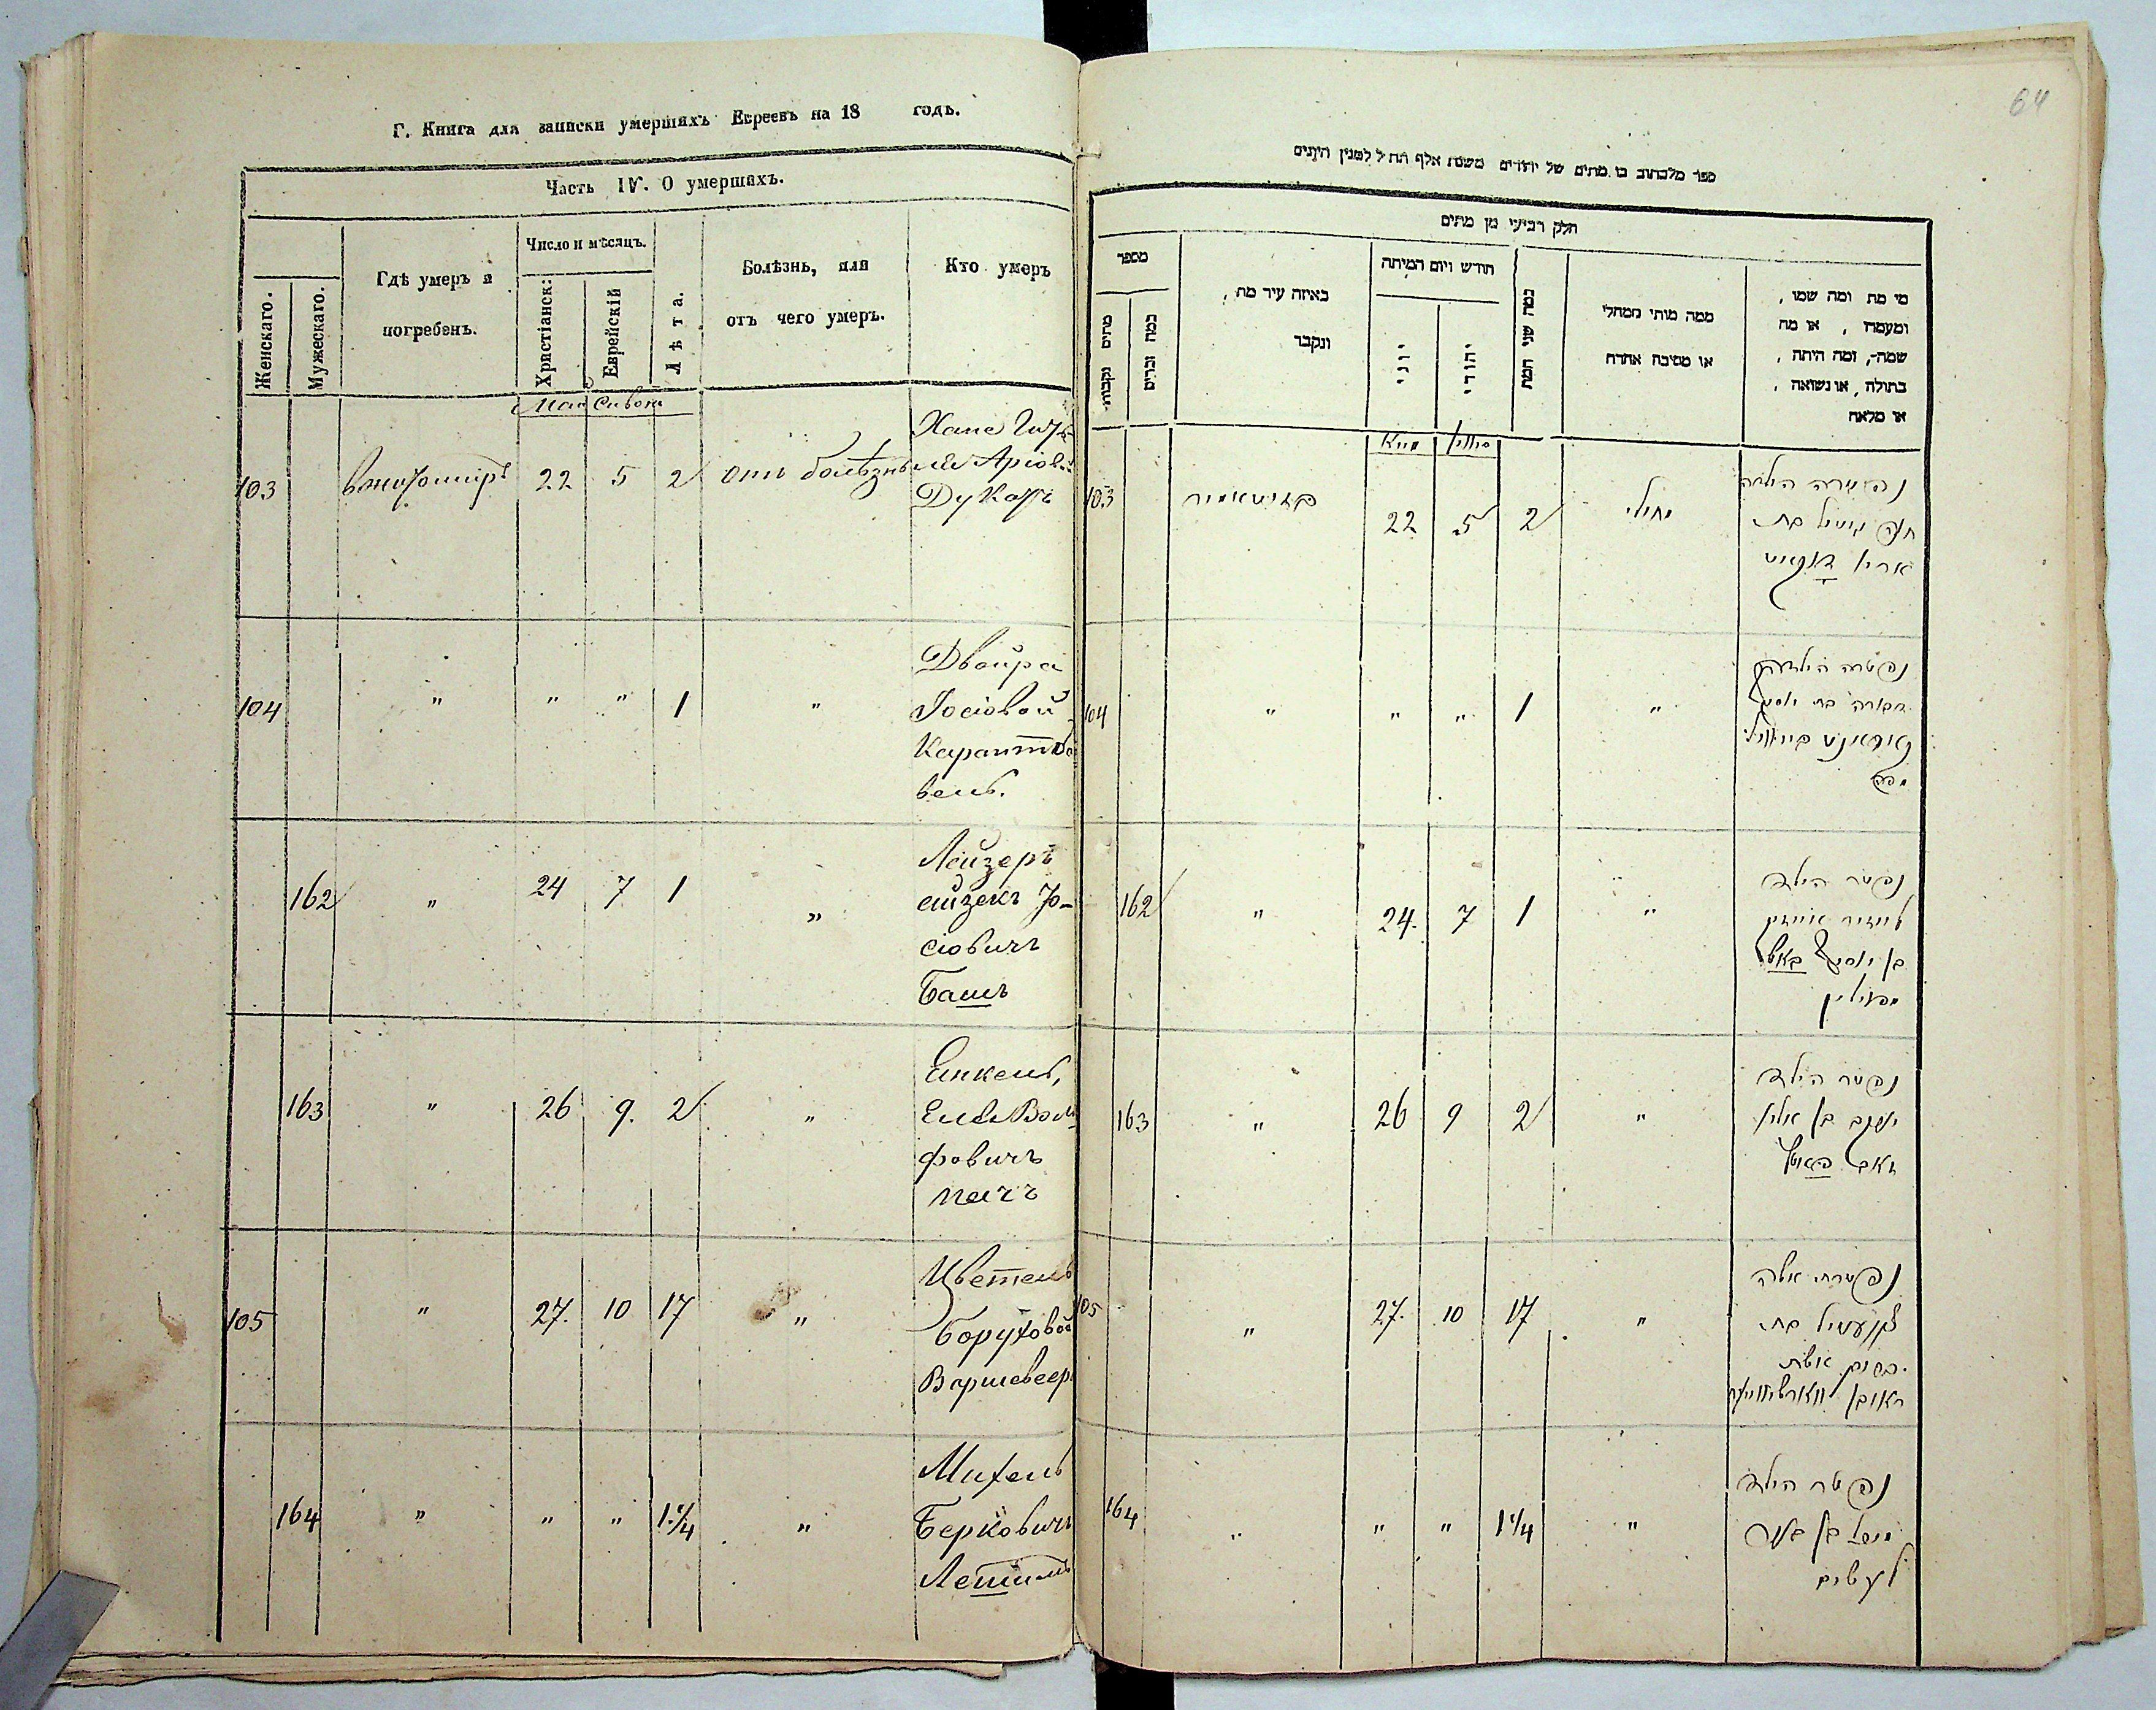 Г. Книга для записки умершихъ Евреевъ на 18 годъ.
Часть IV. О умершихъ.
Женскаго.
Мужескаго.
Гдѣ умеръ и
погребенъ.
Число и мѣсяцъ.
Христіанск:
Еврейскій
Лѣта.
Болѣзнь, или
отъ чего умеръ.
Кто умеръ
Маи Сивона
103 Вжитомирѣ 22 5 2 отъ болѣзны
Хана
Аріовой
Дукатъ
104 " " " 1 "
Двойра
Іосіовой
Карантба
вель.
162 " 24 7 1 "
Лейзеръ
айзекъ Іо-
сіовичъ
Башъ
163 " 26 9. 2 "
Енкель,
Еля Воль
фовичъ
пачъ
105 " 27. 10 17 "
Цветель
Боруховой
Варшевеер
164 " " " 1.1/4 "
Михель
Берковичъ
Лепшмъ
64
ספר מלכתוב בו מתים של יהודים משנת אלף תתל למנין היונים
חלק רביעי מן מתים
מספר
מתים נקבות
כמה זכרים
באיזה עיר מת,
ונקבר
חודש ויום המיתה
יוני
יהודי
כמה שני המת
ממה מותי ממחלי
או מסיבה אחרת
מי מת ומה שמו,
ומעמדו, או מה
שמה, ומה היתה,
בתולה, או נשואה,
או מלאה
מייא סיון
103 בזיטאמיר 22 5 2 חולי
נפטרה הילדה
חנה גיטיל בת
ארי' דוקאט
104 " " " 1 "
נפטרה הילדה
דבורה בת יוסף
מפה
162 " 24. 7 1 "
נפטר הילד
לייזיר אייזיק
בן יוסף באש
163 " 26 9 2 "
נפטר הילד
יעקב בן אלי'
זאב פאטץ
105 " 27. 10 17 "
נפטרת אשה
צוועטיל בת
ברוך אשת
ראובן ווארשיווער
164 " " " 1 1/4 "
נפטר הילד
מיכל בן בער